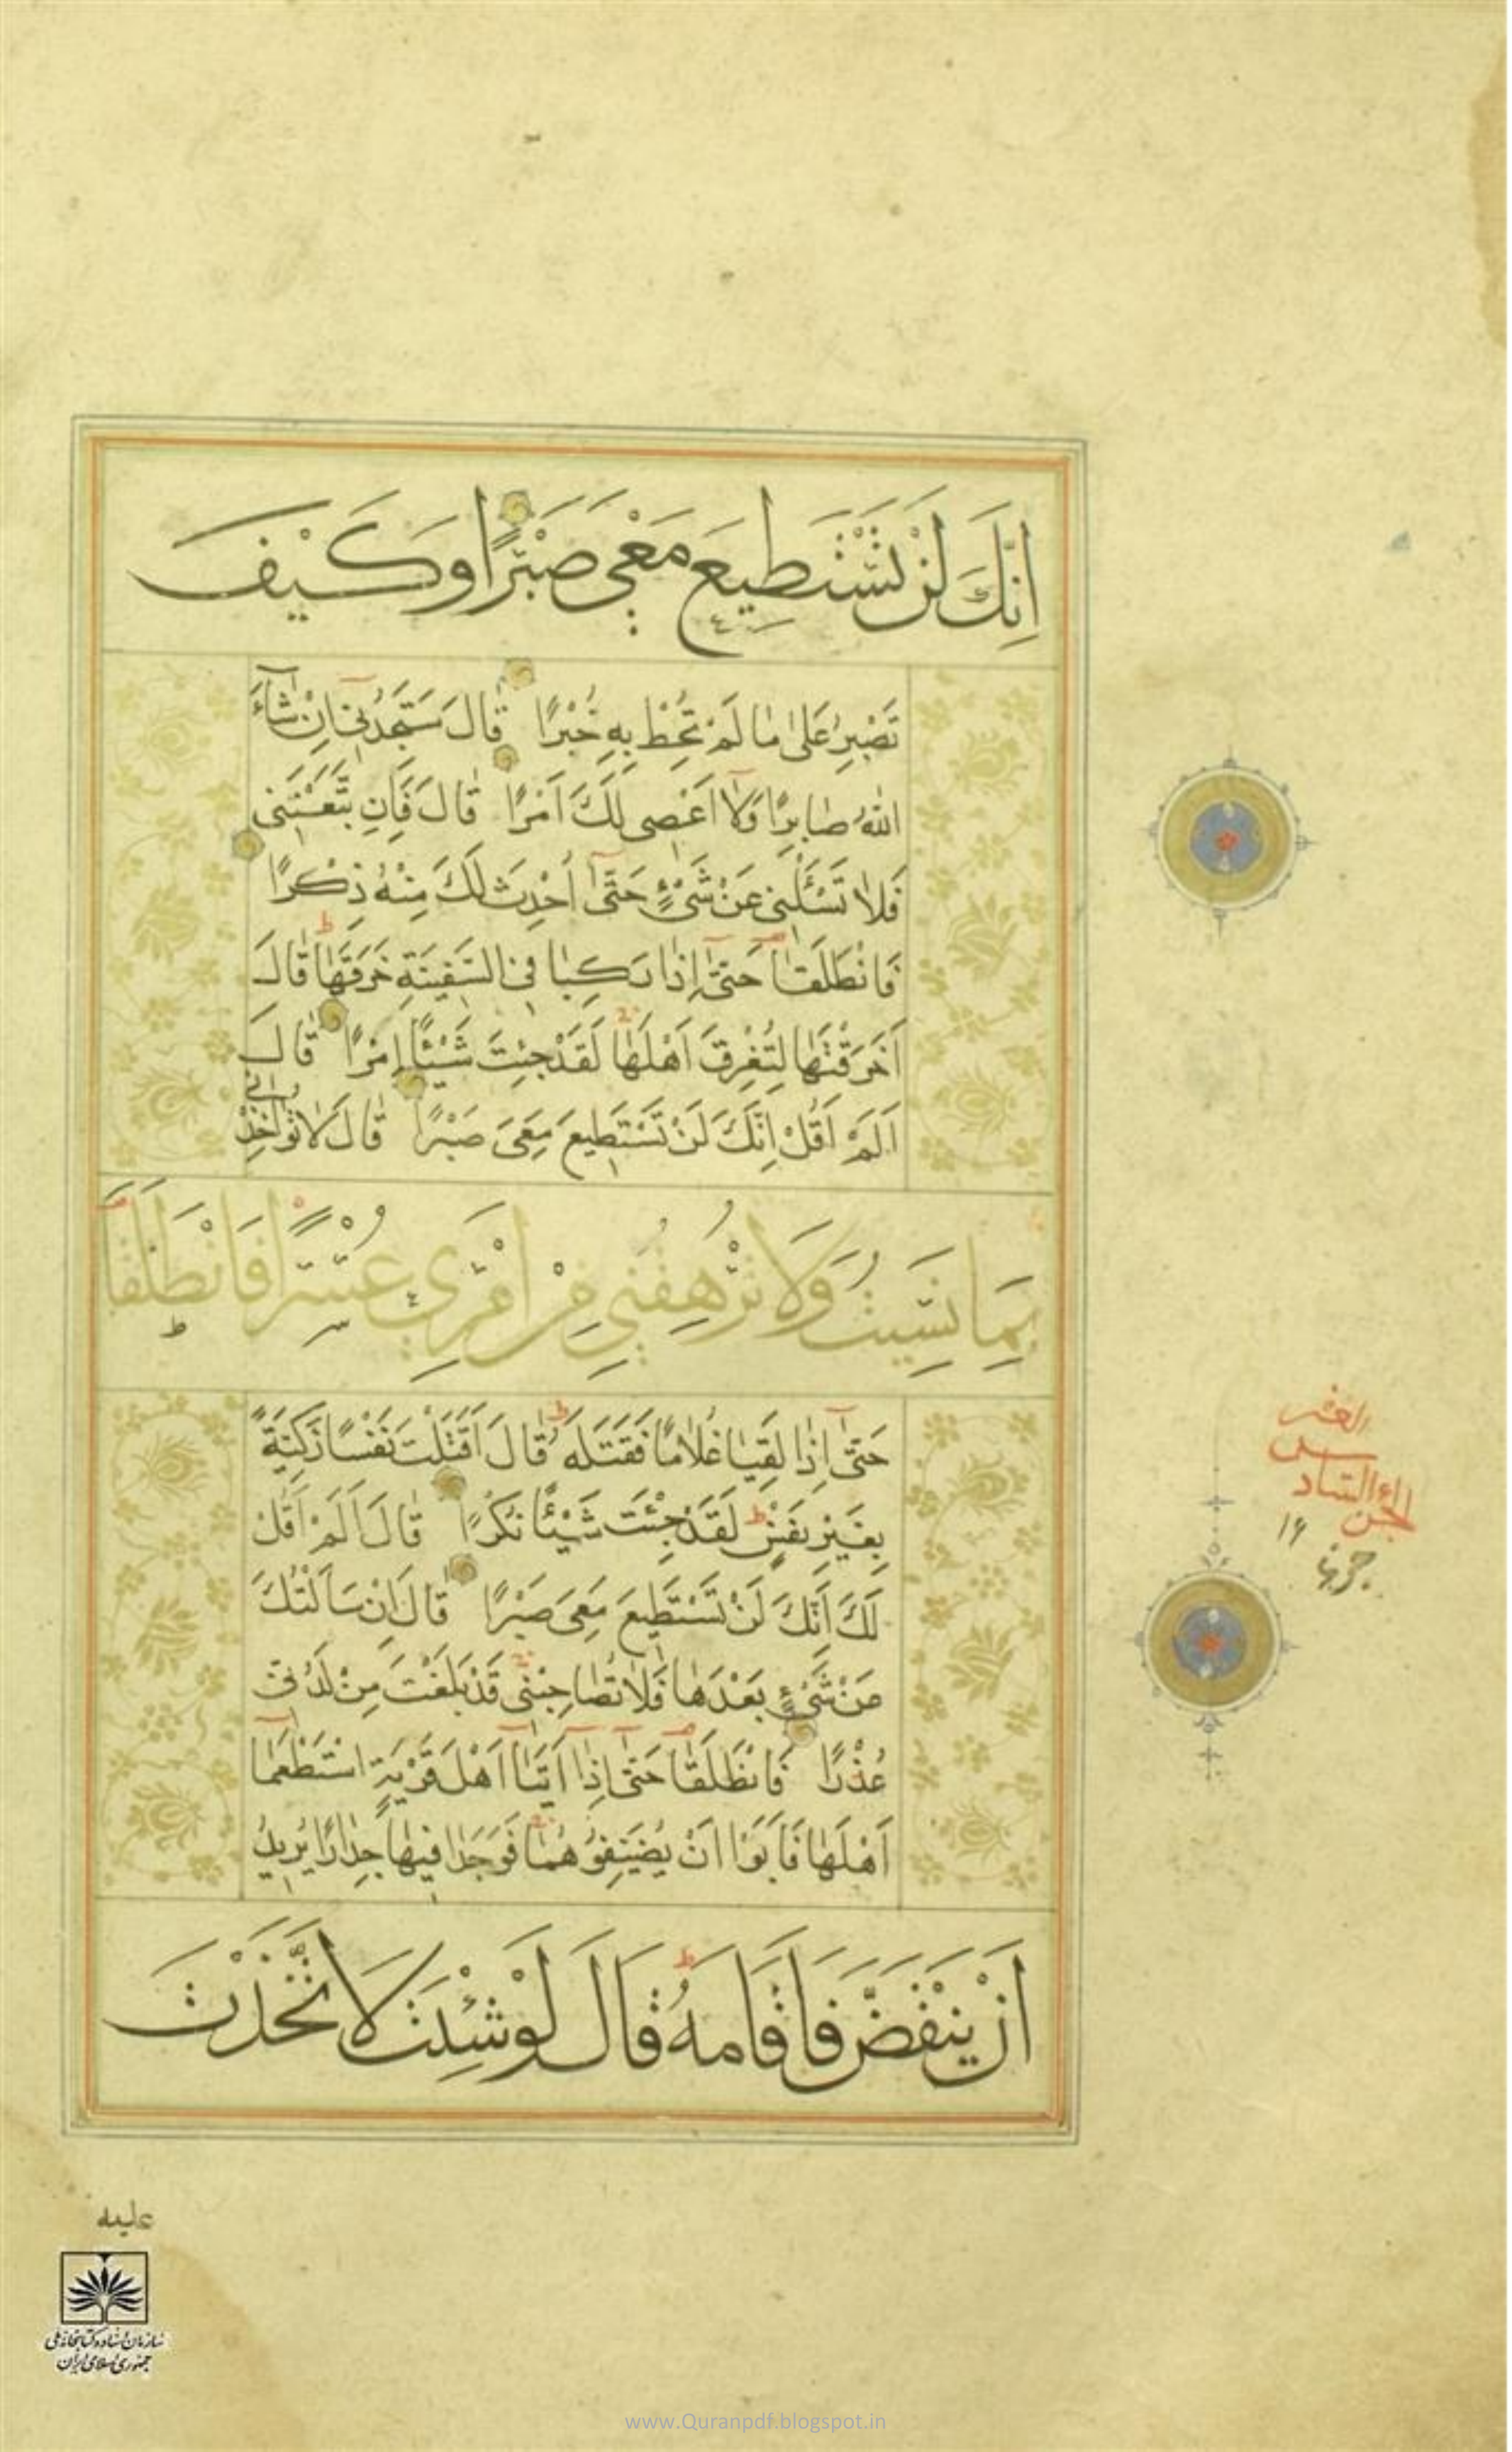 اِنَّكَ لَنْ تَسْتَطِيعَ مَعِيَ صَبْرًا وَكَيْفَ
تَصْبِرُ عَلٰى مٰا لَمْ تُحِطْ بِهِ خُبْرًا قٰالَ سَتَجِدُنِي اِنْ شٰاءَ
اللّٰهُ صٰابِرًا وَلٰا اَعْصِى لَكَ اَمْرًا قٰالَ فَاِنِ اتَّبَعْتَنِى
فَلٰا تَسْئَلْنِى عَنْ شَىْءٍ حَتّٰى اُحْدِثَ لَكَ مِنْهُ ذِكْرًا
فَانْطَلَقٰا حَتّٰى اِذٰا رَكِبٰا فِى السَّفِينَةِ خَرَقَهٰا قٰالَ
اَخَرَقْتَهٰا لِتُغْرِقَ اَهْلَهٰا لَقَدْ جِئْتَ شَيْئًا اِمْرًا قٰالَ
اَلَمْ اَقُلْ اِنَّكَ لَنْ تَسْتَطِيعَ مَعِىَ صَبْرًا قٰالَ لٰا تُؤٰاخِذْنِى
بِمَا نَسِيتُ وَلَا تُرْهِقْنِي مِنْ اَمْرِي عُسْرًا فَانْطَلَقَا
حَتّٰى اِذٰا لَقِيٰا غُلٰامًا فَقَتَلَهُ قٰالَ اَقَتَلْتَ نَفْسًا زَكِيَّةً
بِغَيْرِ نَفْسٍ لَقَدْ جِئْتَ شَيْئًا نُكْرًا قٰالَ اَلَمْ اَقُلْ
لَكَ اِنَّكَ لَنْ تَسْتَطِيعَ مَعِىَ صَبْرًا قٰالَ اِنْ سَاَلْتُكَ
عَنْ شَىْءٍ بَعْدَهٰا فَلٰا تُصٰاحِبْنِى قَدْ بَلَغْتَ مِنْ لَدُنِّى
عُذْرًا فَانْطَلَقٰا حَتّٰى اِذٰا اَتَيٰا اَهْلَ قَرْيَةٍ اسْتَطْعَمٰا
اَهْلَهٰا فَاَبَوْا اَنْ يُضَيِّفُوهُمٰا فَوَجَدٰا فِيهٰا جِدٰارًا يُرِيدُ
اَنْ يَنْقَضَّ فَاَقَامَهُ قَالَ لَوْ شِئْتَ لَاتَّخَذْتَ
العشر
الجزء السادس
۱۶
عليه
سازمان اسناد و کتابخانه ملی
جمهوری اسلامی ایران
www.Quranpdf.blogspot.in